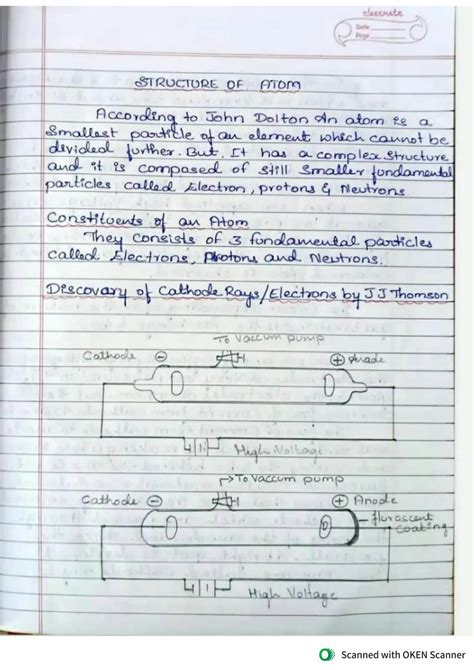 classmate
Date
Page
STRUCTURE OF ATOM
According to John Dolton An atom is a
Smallest particle of an element which cannot be
divided further. But, It has a complex structure
and it is composed of still smaller fundamental
particles called Electron, protons & Neutrons
Constituents of an Atom
They consists of 3 fundamental particles
called Electrons, Protons and Neutrons.
Descovary of Cathode Rays/Electrons by J J Thomson
To Vaccum pump
Cathode - + Anade
High Voltage
To vaccum pump
Cathode - + Anode
fluroscent
coating
High Voltage
Scanned with OKEN Scanner